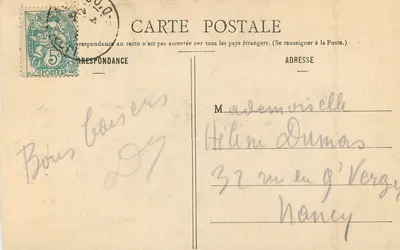 CARTE POSTALE
orrespondance au recto n'est pas acceptée par tous les pays étrangers. (Se renseigner à la Poste.)
RRESPONDANCE
ADRESSE
5
POSTES
Bons baisers
Mademoiselle
Hélène Dumas
32 rue en
Nancy